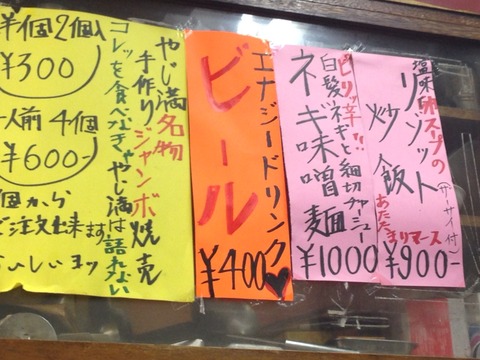 塩味卵スープの
リゾット
炒飯
(ザーサイ付)
あたたまりマース
¥900-
ピリッ辛!!
白髪ネギと細切チャーシュー
ネギ味噌麺
¥1000
エナジードリンク♥
ビール
¥400
やじ満名物
手作りジャンボ焼売
コレッを食べなきゃやじ満は語れない
半個2個入
¥300
一人前4個
¥600
個から
ご注文出来ます
おいしいヨッ